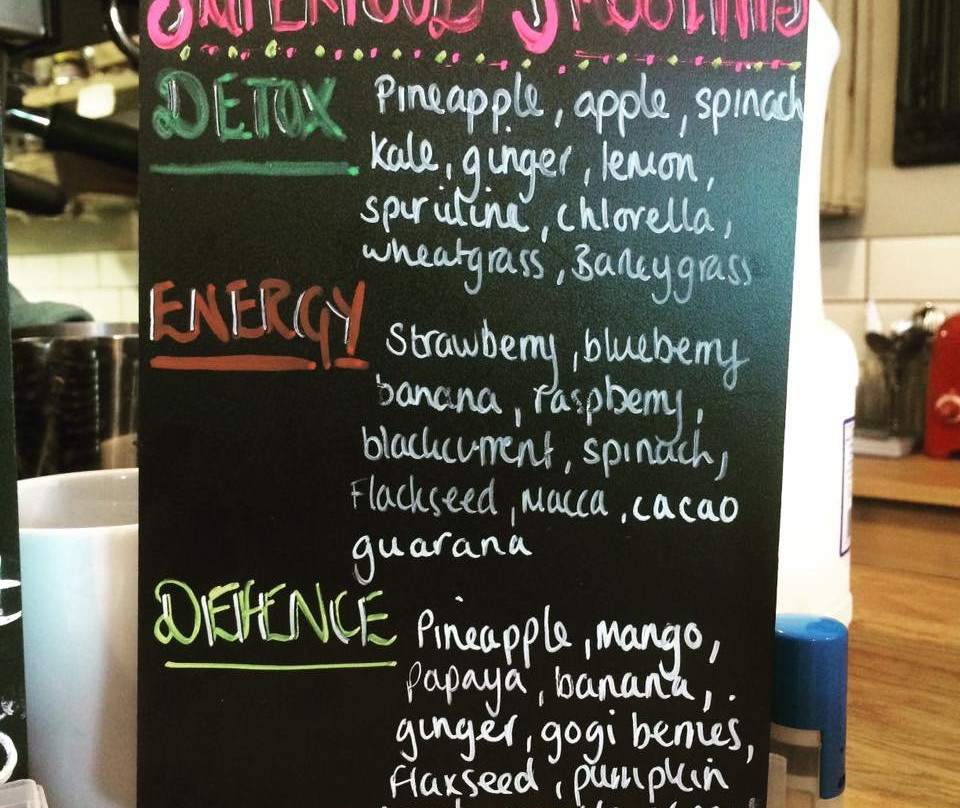 SUPERFOOD SMOOTHIES
DETOX Pineapple, apple, spinach
kale, ginger, lemon,
spirulina, chlorella,
wheatgrass, Barleygrass
ENERGY Strawberry, blueberry
banana, raspberry,
blackcurrent, spinach,
Flackseed, Macca, cacao
guarana
DEFENCE Pineapple, mango,
Papaya, banana,
ginger, gogi berries,
flaxseed, pumpkin